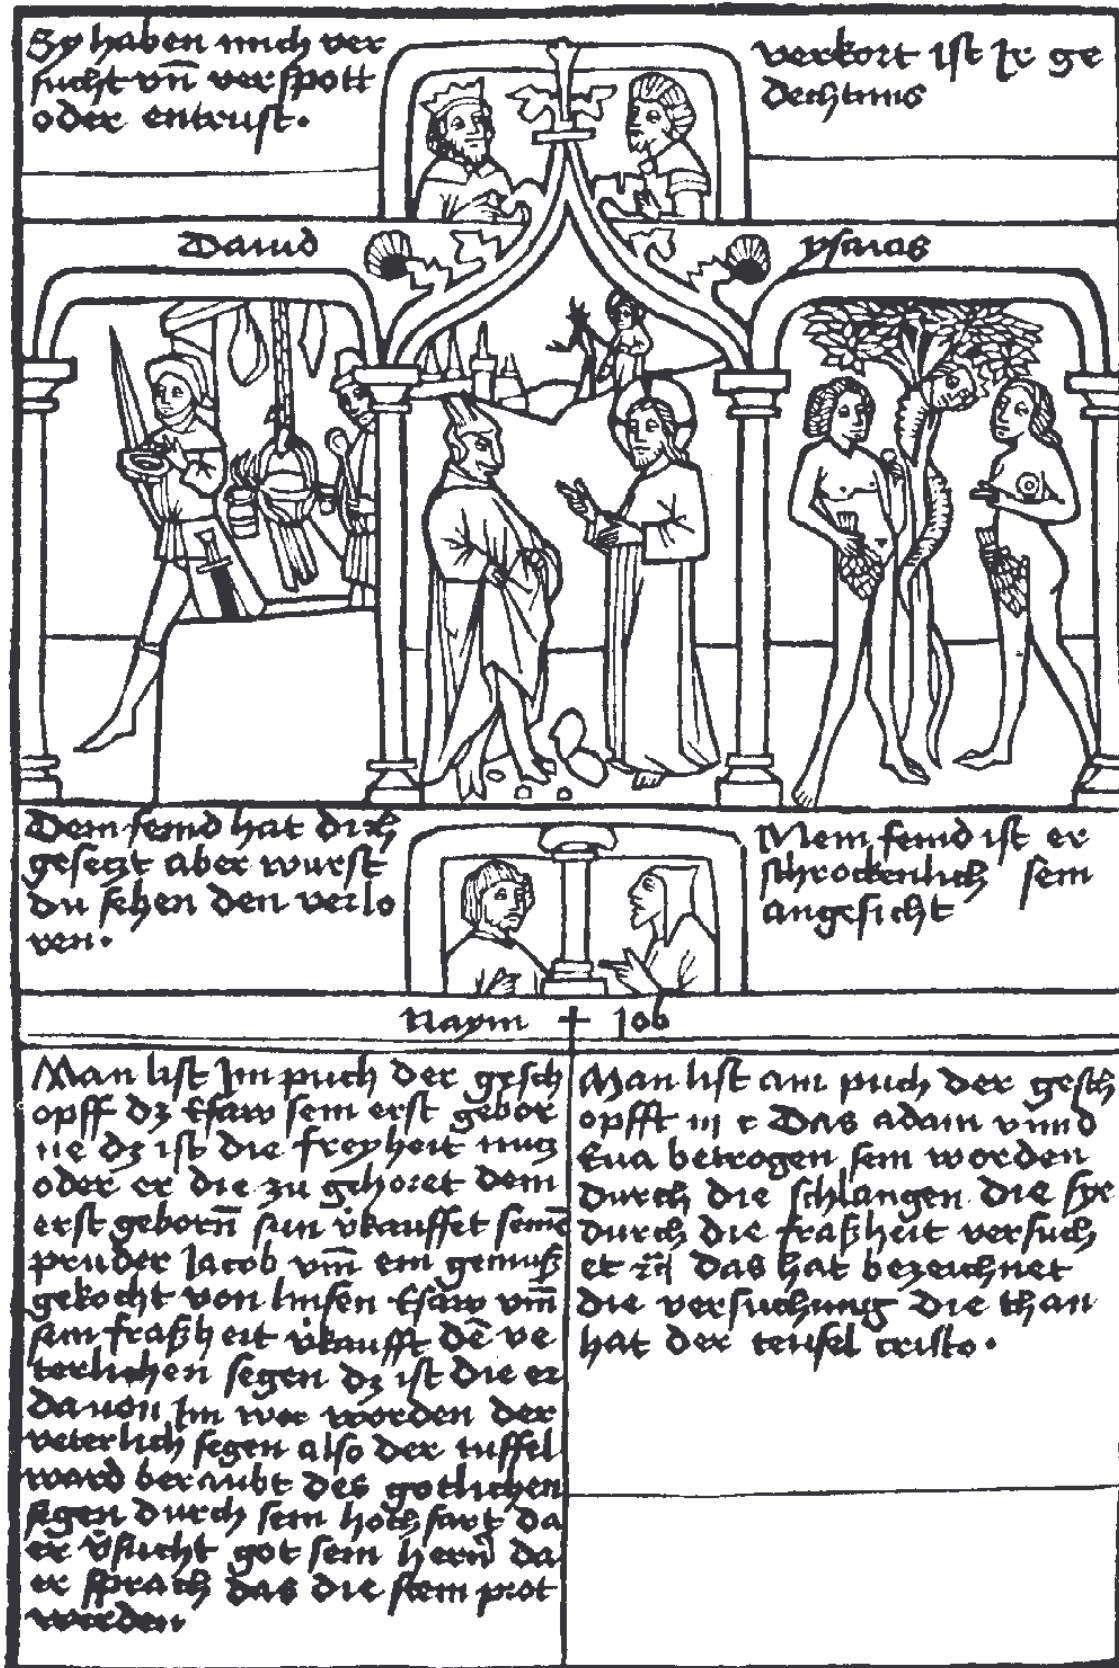 Sy haben mich ver
sucht vn̄ verspott
oder entrust.
verkort ist Ir ge
dechtnus
Dauid
ysaias
Dem feind hat dich
gesetzt aber wurst
du sehen den verlo
ren.
Mein feind ist er
schrockenlich sein
angesicht
Naym
Job
Man list Im puch der gesch
opff dz Esaw sein erst gebor
ne dz ist die freyheit nutz
oder er die zu gehoret dem
erst gebornn̄ sun v̇kauffet seinē
pruder Jacob vm̄ ein gemuß
gekocht von linsen Esaw vm̄
sein fraßheit v̇kaufft dē ve
terlichen segen dz ist die er
dauon Im wer worden der
veterlich segen also der tuffel
ward beraubt des gotlichen
segen durch sein hochfart da
er v̇sucht got sein hern̄ da
er sprach das die stein prot
werden.
Man list am puch der gesch
opfft iij c Das adam vnnd
Eua betrogen sein worden
durch die schlangen die sye
durch die fraßheit versuch
et das hat bezeichnet
die versuchung die than
hat der teufel cristo.